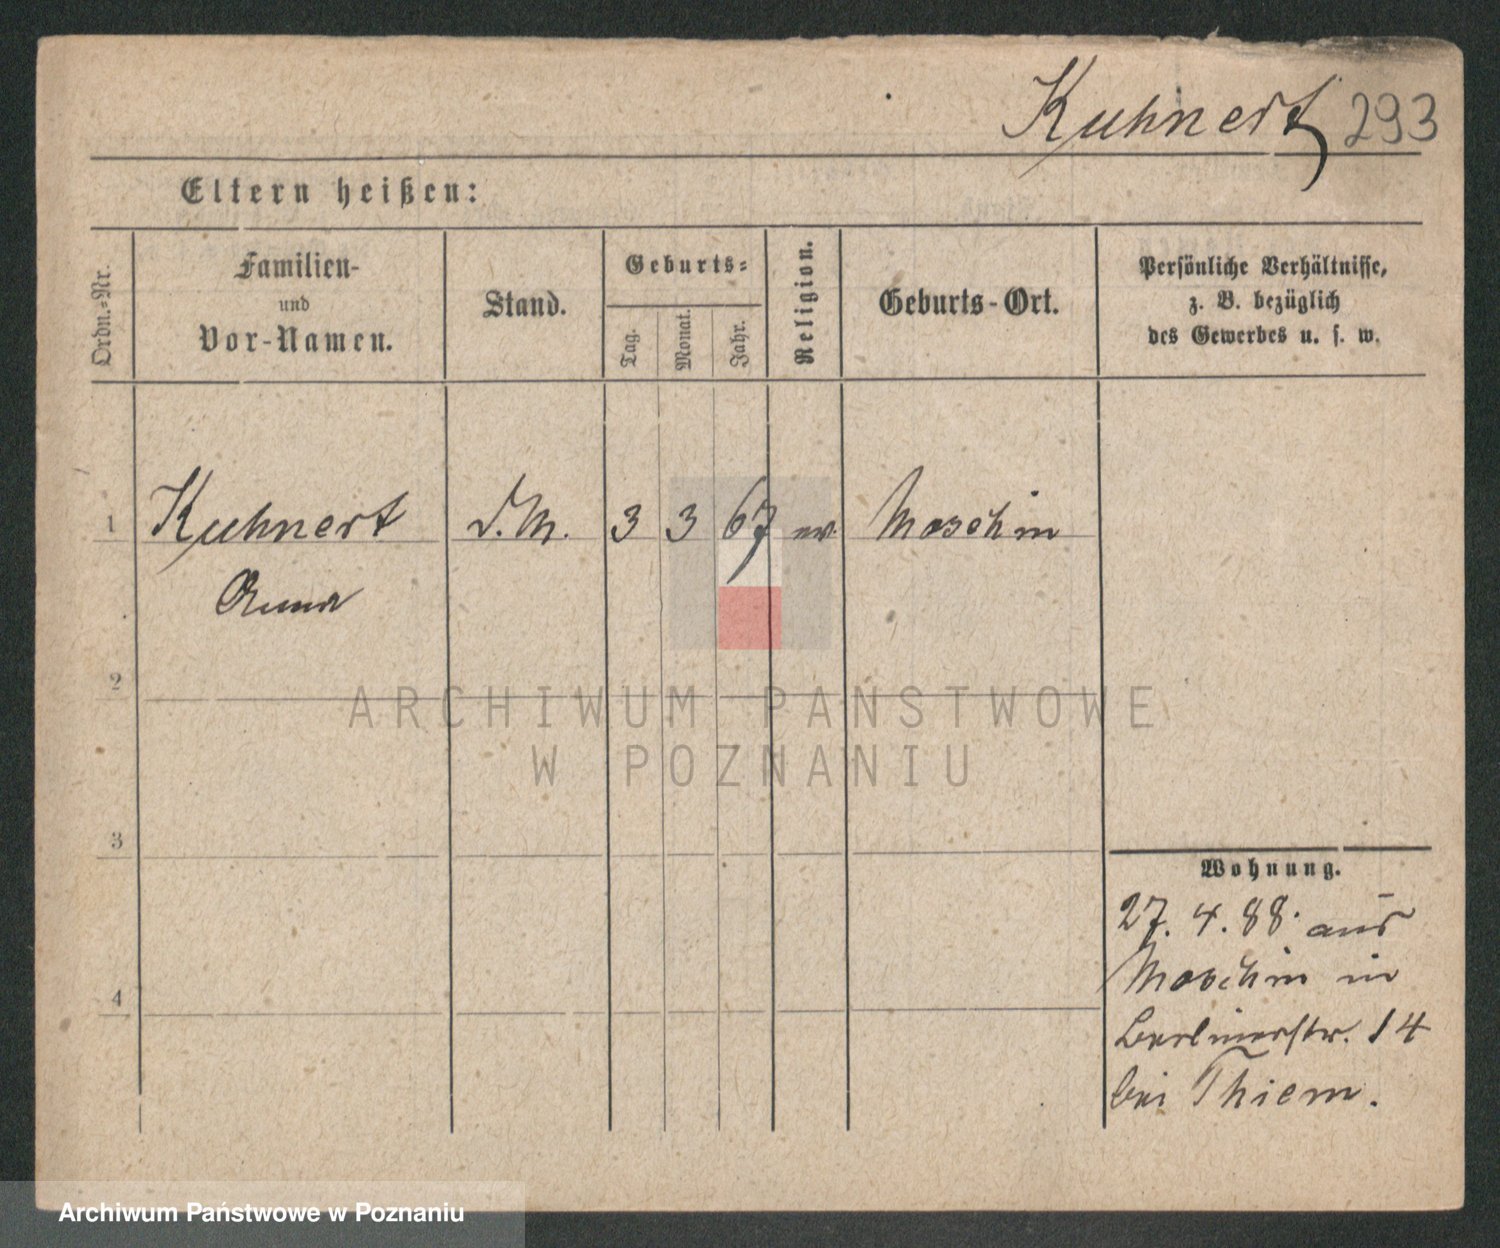 Kuhnert 293
Eltern heißen:
Ordn.-Nr.
Familien-
und
Vor-Namen.
Stand.
Geburts-
Tag.
Monat.
Jahr.
Religion.
Geburts-Ort.
Persönliche Verhältnisse,
z. B. bezüglich
des Gewerbes u. s. w.
1 Kuhnert D.M. 3 3 67 ev. Moschin
Anna
2
ARCHIWUM PANSTWOWE
W POZNANIU
3
Wohnung.
27. 4. 88. aus
Moschin in
4
Berlinerstr. 14
bei Thiem.
Archiwum Państwowe w Poznaniu